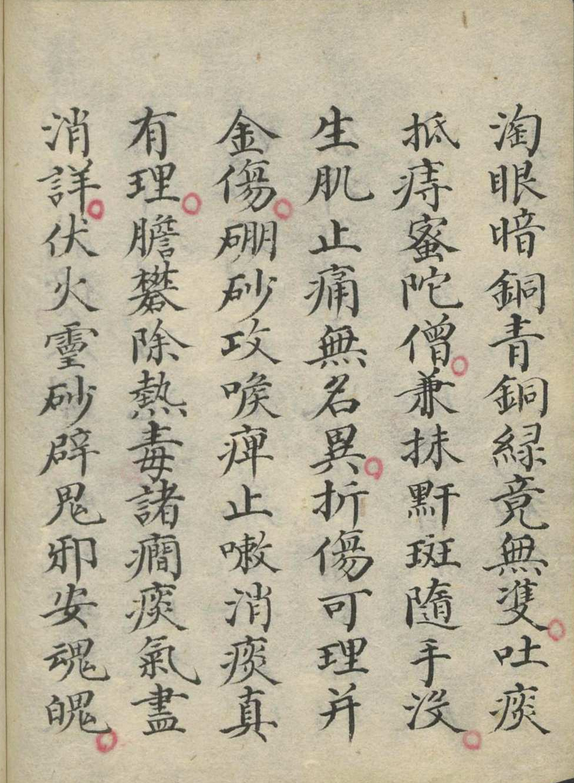 淘眼暗銅青銅緑竟無隻吐痰
抵痔蜜陀僧兼抹䵟斑隨手沒
生肌止痛無名異折傷可理并
金傷硼砂攻喉痺止嗽消痰真
有理膽礬除熱毒諸癇痰氣盡
消詳伏火靈砂辟鬼邪安魂魄